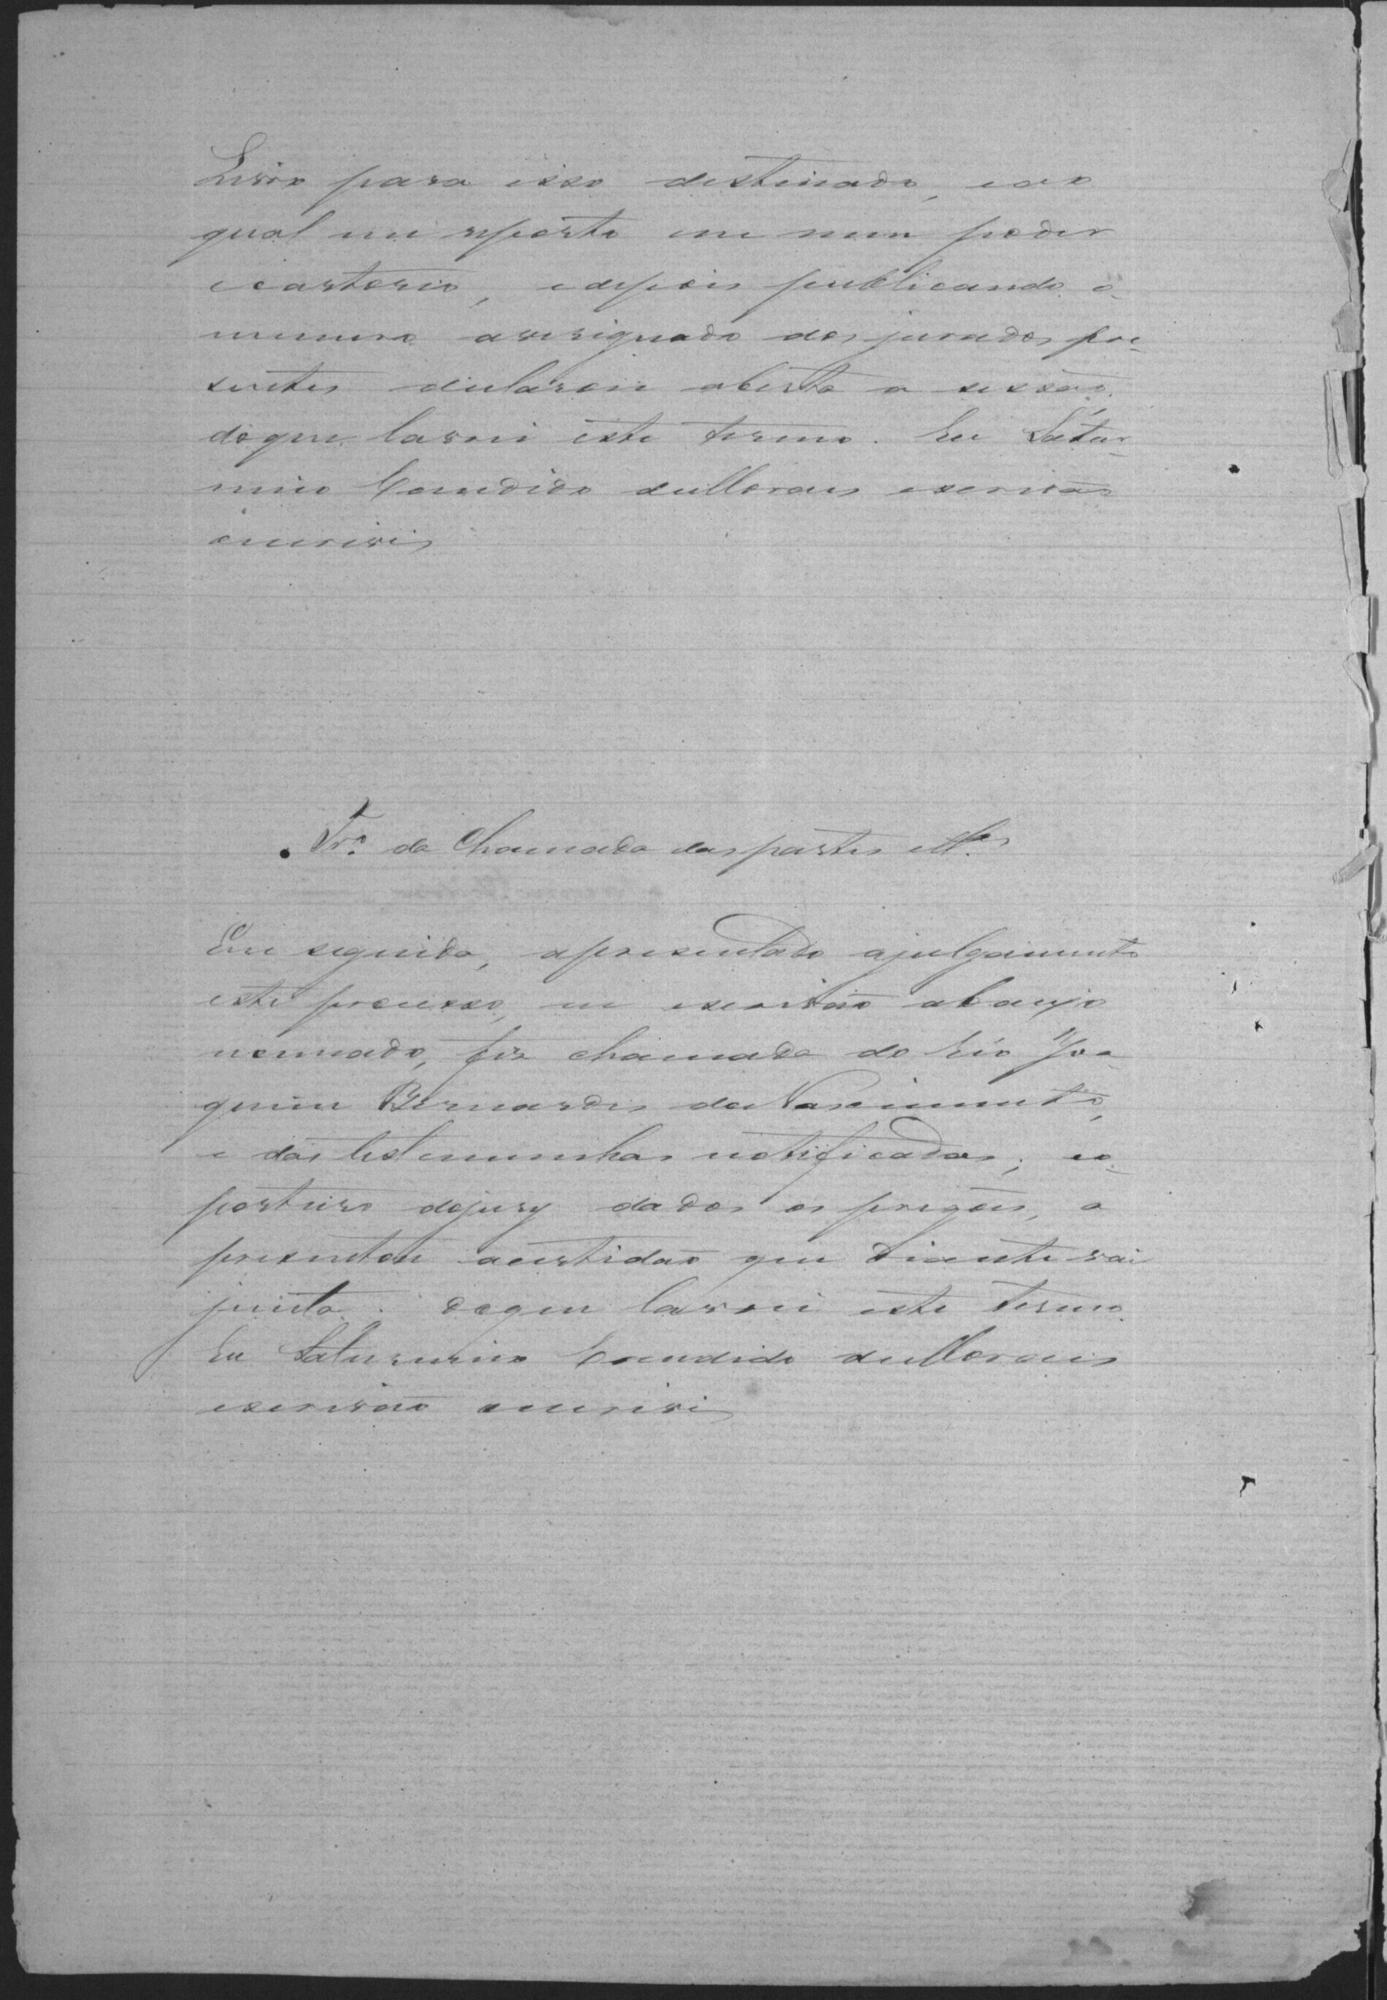 Livro para isso destinado, e ao
qual me reporto em meu poder
e cartorio, e depois publicando o
numero assignado dos jurados pre-
sentes declarou aberta a sessão.
do que lavrei este termo. Eu Satur-
nino Candido de Moraes escrivão
escrivi
Tr.º da Chamada das partes e tt.as
Em seguida, apresentado a julgamento
este processo, eu escrivão abaixo
nomeado, fiz chamada do Réo Joa
quim Bernardes do Nascimento,
e das testemunhas notificadas; e o
porteiro do jury dados os pregões, a
presentou a certidão que diante vai
junta. do que lavrei este termo.
Eu Saturnino Candido de Moraes
escrivão escrivi